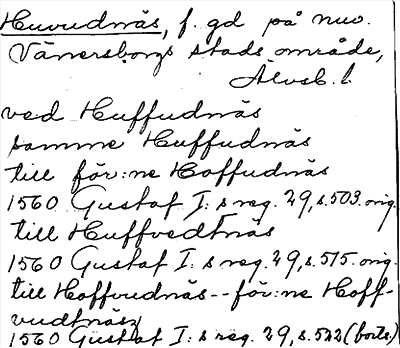 Huvudnäs, f. gd på nuv.
Vänersborgs stads område,
Älvsb. l.
ved Huffudnäs
samme Huffudnäs
till för:ne Hoffudnäs
1560 Gustaf I:s reg. 29, s. 503. orig.
till Huffvedtnäs
1560 Gustaf I:s reg. 29, s. 515. orig.
till Hoffvudnäs -- för:ne Hoff-
vudtnäsz
1560 Gustaf I:s reg. 29, s. 522 (forts.)